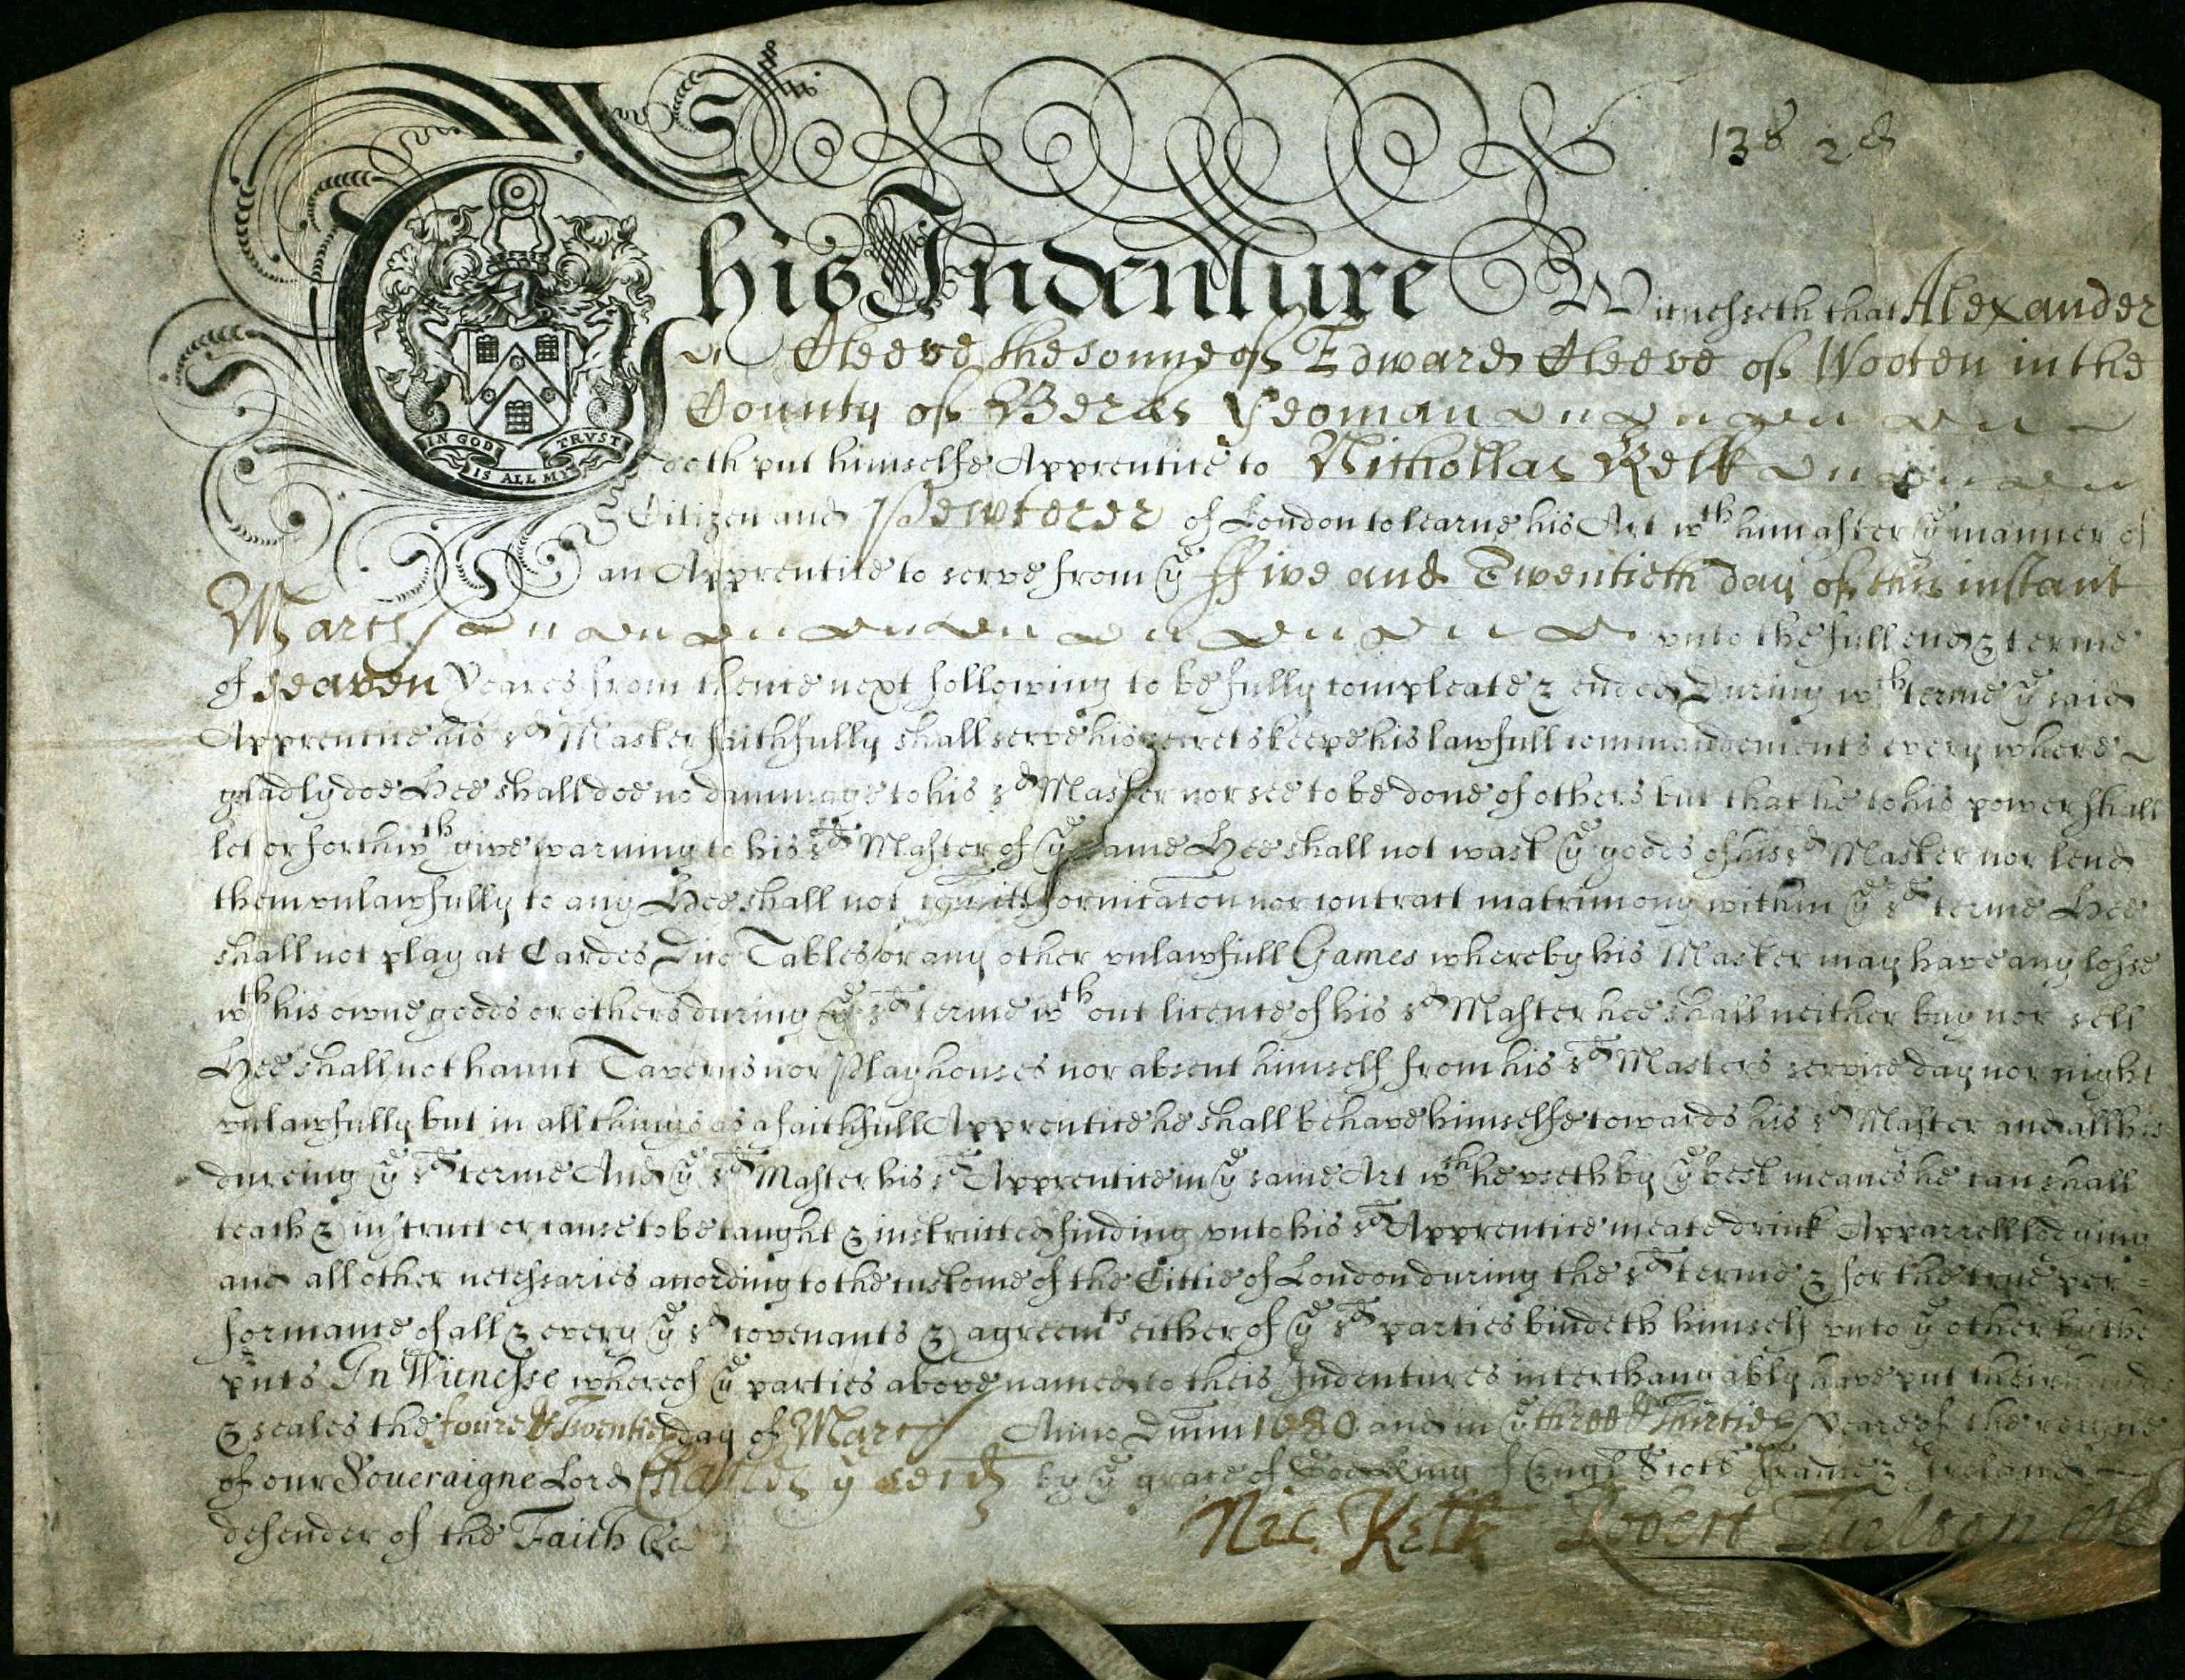 138 2d
This Indenture Witnesseth that Alexander
Cleeve the sonne of Edward Cleeve of Wooten in the
County of Berks Yeoman
IN GOD IS ALL MY TRVST
doth put himselfe Apprentice to Nichollas Kelk
Citizen and Pewterer of London to learne his Art wth him after ye manner of
an Apprentice to serve from ye ffive and Twentieth day of this instant
March vnto the full end & terme
of seaven Yeares from thence next following to be fully compleate & ended During wch terme ye said
Apprentice his sd Master faithfully shall serve his secrets keepe his lawfull commandements every where
gladly doe Hee shall doe no dammage to his sd Master nor see to be done of others but that he to his power shall
let or forthwth give warning to his sd Master of ye same Hee shall not wast ye goods of his sd Master nor lend
them vnlawfully to any Hee shall not comitt fornicacon nor contract matrimony within ye sd terme Hee
shall not play at Cardes Dice Tables or any other vnlawfull Games whereby his Master may have any losse
wth his owne goods or others during ye sd terme wthout licence of his sd Master hee shall neither buy nor sell
Hee shall not haunt Taverns nor Playhouses nor absent himself from his sd Masters service day nor night
vnlawfully but in all things as a faithfull Apprentice he shall behave himselfe towards his sd Master and all his
dureing ye sd terme And ye sd Master his sd Apprentice in ye same Art wch he vseth by ye best meanes he can shall
teach & instruct or cause to be taught & instructed finding vnto his sd Apprentice meate drink Apparrell lodging
and all other necessaries according to the custome of the Cittie of London during the sd terme & for the true per=
formance of all & every ye sd covenants & agreemts either of ye sd parties bindeth himself vnto ye other by the
pnts In Witnesse whereof ye parties above named to theis Indentures interchangably have put their hands
& seales the foure & Twentieth day of March Anno Dnm 1680 and in ye three & Thirtieth Yeare of the reigne
of our Soueraigne Lord Charles ye secd by ye grace of God King of Engl Scotl France & Ireland
defender of the Faith &c
Nic. Kelk Robert